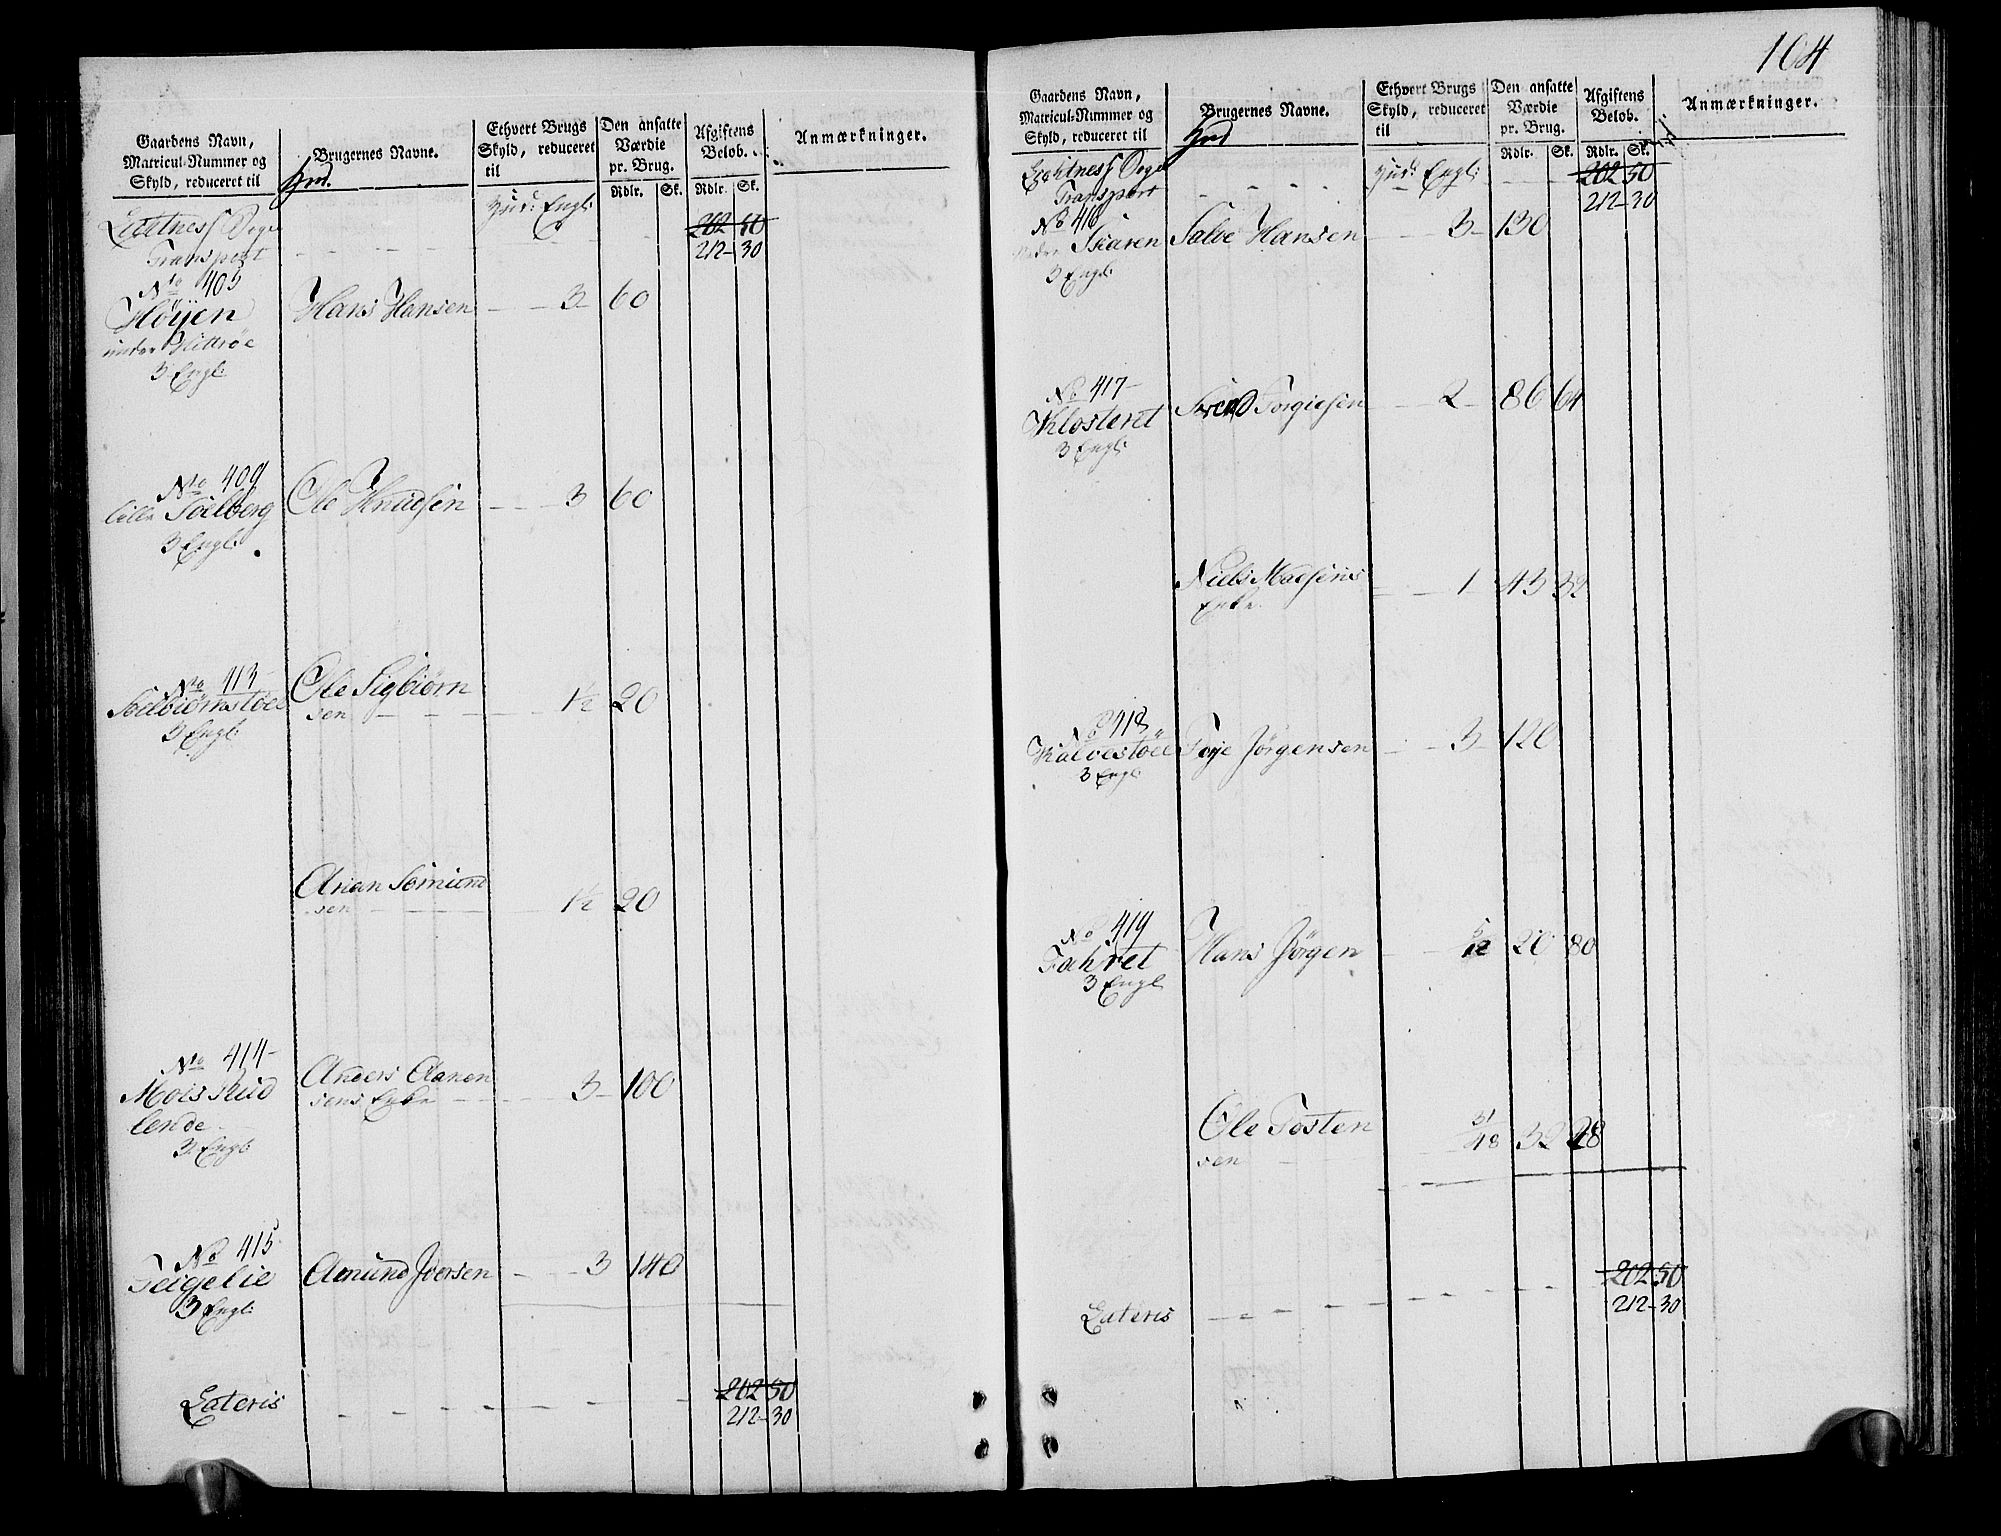 Gaardens Navn,
Matricul-Nummer og
Skyld, reduceret til
Brugernes Navne.
Ethvert Brugs
Skyld, reduceret
til
Den ansatte
Værdie
pr. Brug.
Rdlr. Sk.
Afgiftens
Belob.
Rdlr. Sk.
Anmærkninger.
Hud: Engl:
Transport
202 50
212-30
No 405
Høyen Hans Hansen 3 60
under Hittrøe
3 Engl:
No 409
lille Soelberg Ole Knudsen 3 60
3 Engl:
No 413
Soelbiørnstøel Ole Sigbiørn
sen 1½ 20
3 Engl:
Arian Somund
sen 1½ 20
No 414
Moisskud Anders Aanen
lende sens Enke 3 100
3 Engl:
No 415
Teigelie Amund Joersen 3 140
3 Engl:
202 50
Lateris 212-30
104
Gaardens Navn,
Matricul-Nummer og
Skyld, reduceret til
Brugernes Navne.
Ethvert Brugs
Skyld, reduceret
til
Den ansatte
Værdie
pr. Brug.
Rdlr. Sk.
Afgiftens
Belob.
Rdlr. Sk.
Anmærkninger.
Hud: Engl:
Transport
202 50
212-30
No 416
Skaren Salve Hansen 3 130
3 Engl:
No 417
Klosteret Torgiesen 2 86 64
3 Engl:
Niels Madsens
Enke 1 43 32
No 418
Kalvestøel Terje Jörgensen 3 120
3 Engl:
No 419
Fahret Hans Jørgen 20 80
3 Engl
Ole Tosten
sen 31/48 32 28
202 50
Lateris 212-30